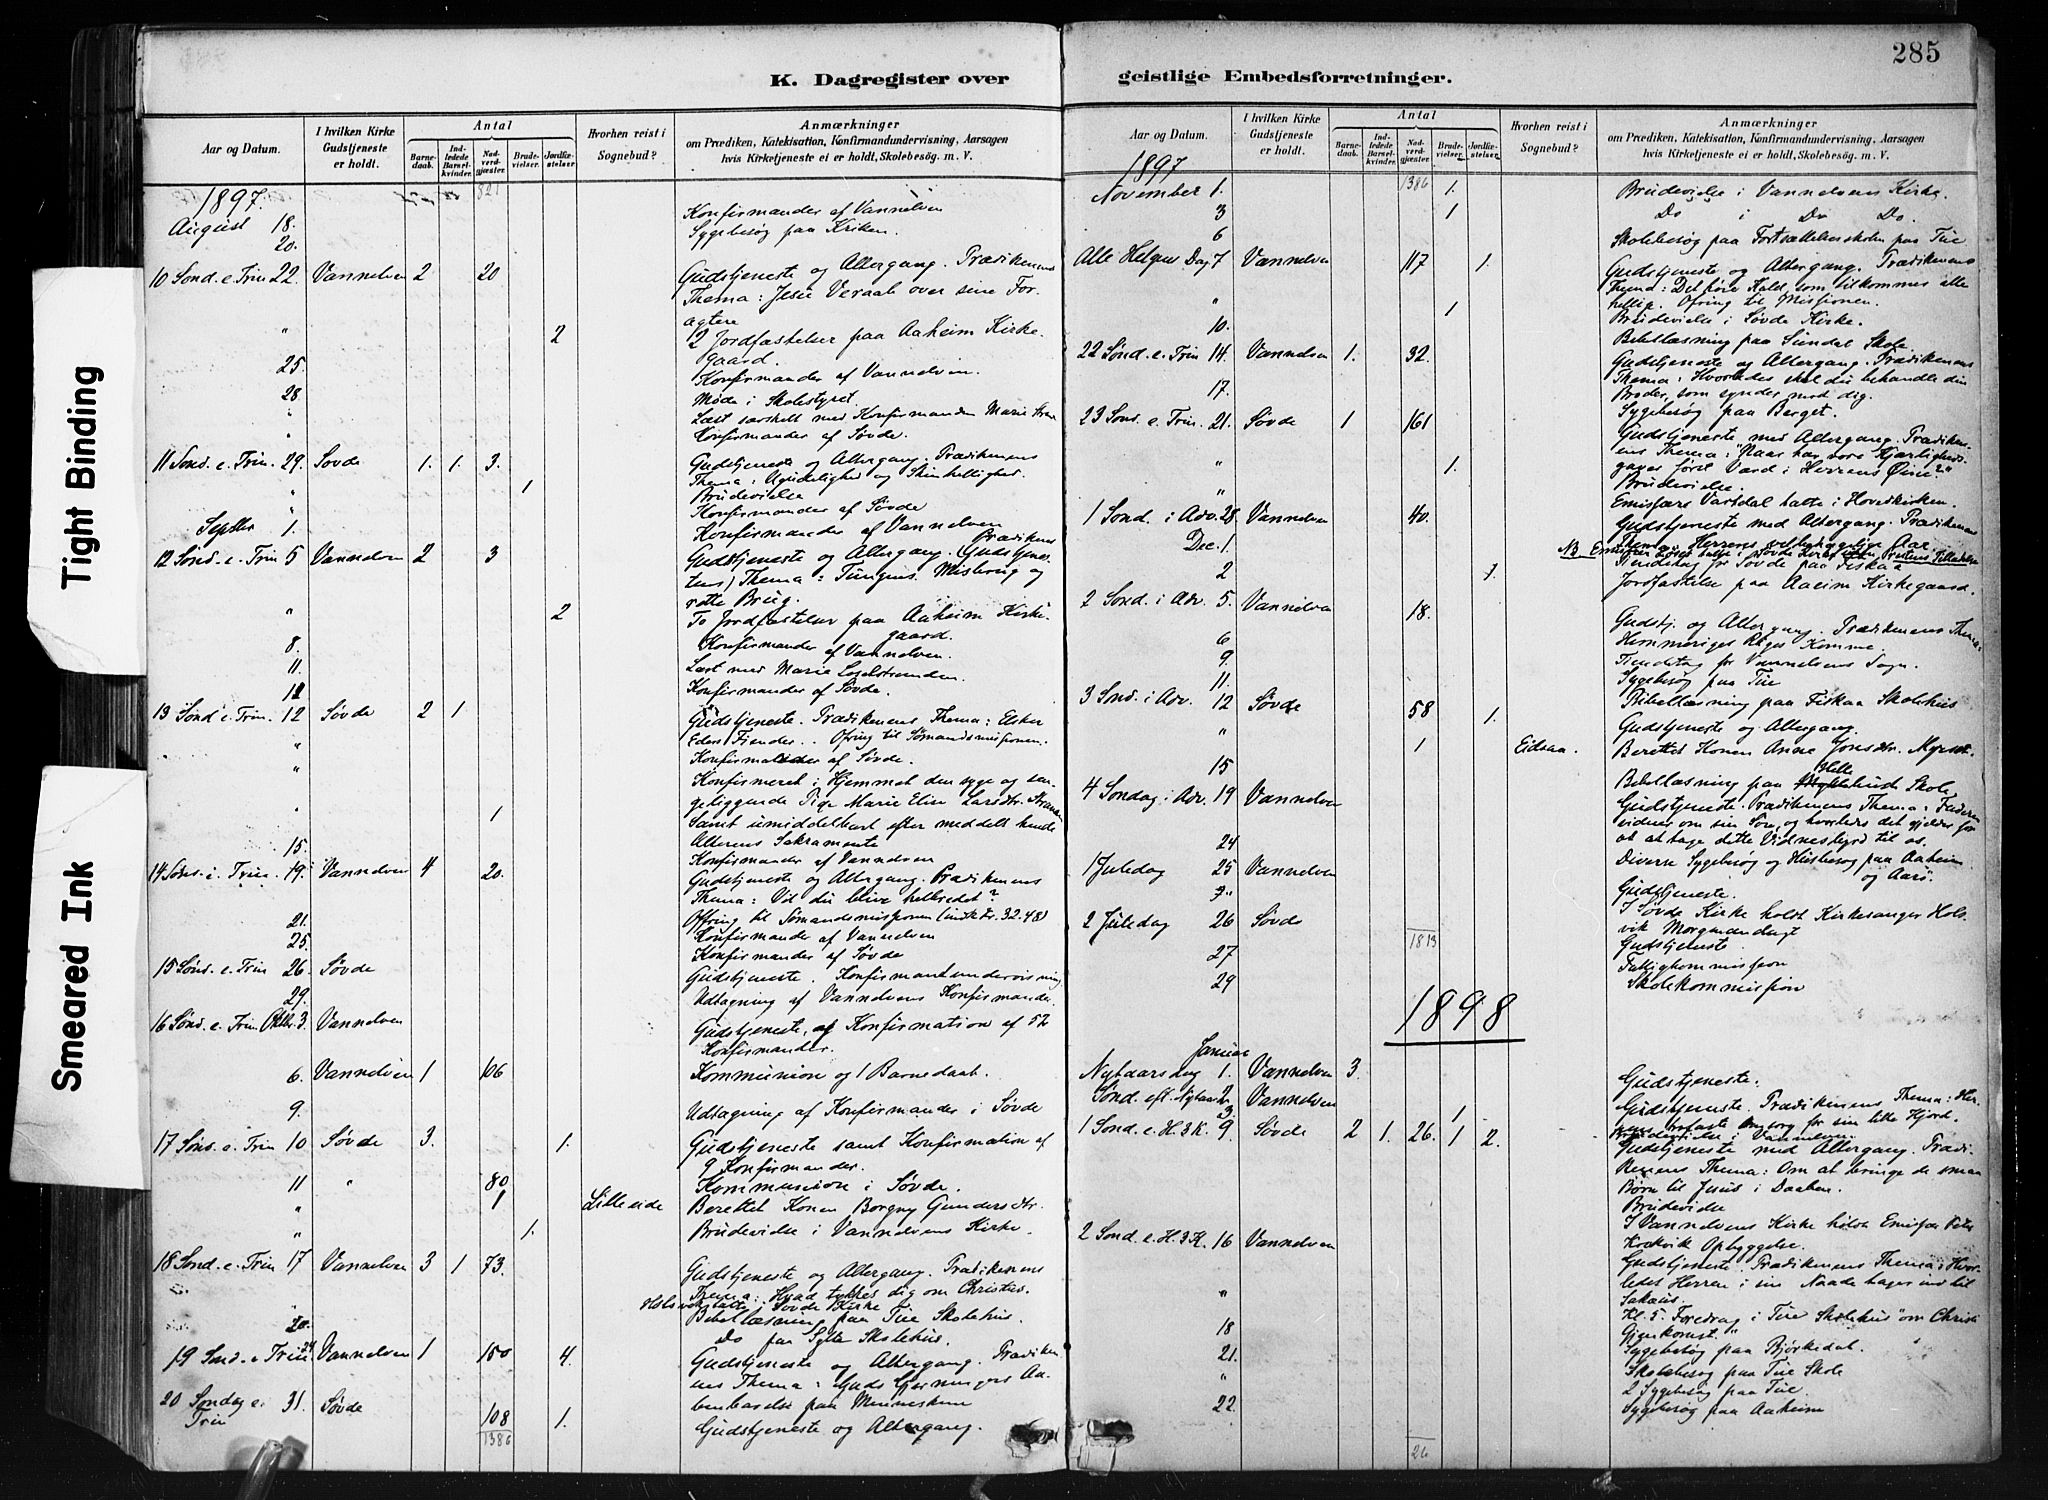 285
K. Dagregister over geistlige Embedsforretninger.
Tight Binding
Smeared Ink
Aar og Datum.
I hvilken Kirke Gudstjeneste er holdt.
Antal
Barnedaab.
Indledede Barselkvinder.
Nadverdgjæster.
Brudevielser.
Jordfæstelser.
Hvorhen reist i Sognebud?
Anmærkninger
om Prædiken, Katekisation, Konfirmandundervisning, Aarsagen
hvis Kirketjeneste ei er holdt, Skolebesøg. m. V.
1897. 821
August 18. Konfirmander af Vannelven
20. Sygebesøg paa Kriken.
10 Sønd. e. Trin 22. Vannelven 2 20 Gudstjeneste og Altergang. Prædikenens
Thema: Jesu Veraab over sine For-
agtere
" 2 2 Jordfæstelser paa Aaheim Kirke-
gaard.
25. Konfirmander af Vannelven.
28. Møde i Skolestyret.
" Læst særskilt med Konfirmanden Marie
" Konfirmander af Søvde.
11 Sønd. e. Trin. 29. Søvde 1. 1. 3. Gudstjeneste og Altergang. Prædikenens
Thema: Ugudelighed og Skinhellighed.
" 1 Brudevielse
" Konfirmander af Søvde
Septbr 1. Konfirmander af Vannelven
12 Sønd. e. Trin 5 Vannelven 2 3 Gudstjeneste og Altergang. (Gudstjenes-
tens) Prædikenens Thema: Tungens Misbrug og
rette Brug.
" 2 To Jordfæstelser paa Aaheim Kirke-
gaard.
8. Konfirmander af Vannelven.
11. Læst med Marie
11 Konfirmander af Søvde.
13 Sønd e. Trin. 12 Søvde 2 1 Gudstjeneste. Prædikenens Thema: Elsker
Eders Fiender. Ofring til Sømandsmissionen.
" Konfirmander af Søvde.
" Konfirmeret i Hjemmet den syge og sen-
geliggende Pige Marie Elise Larsdtr.
" 1 Samt umiddelbart efter meddelt hende
Alterens Sakramente
15. Konfirmander af Vannelven
14 Sønd. e. Trin. 19. Vannelven 4 20. Gudstjeneste og Altergang. Prædikenens
Thema: Vil du blive helbredet?
Offring til Sømandsmissionen (indk kr. 32.48)
21. Konfirmander af Vannelven
25. Konfirmander af Søvde
15 Sønd. e. Trin 26. Søvde Gudstjeneste. Konfirmantundervisning
29. Udtagning af Vannelvens Konfirmander.
16 Sønd. e. Trin Oktbr. 3. Vannelven Gudstjeneste, af Konfirmation af 52
Konfirmander.
6. Vannelven 1 106 Kommunion og 1 Barnedaab.
9. Udtagning af Konfirmander i Søvde
17 Sønd. e. Trin 10 Søvde 3. 1. Gudstjeneste samt Konfirmation af
9 Konfirmander.
11 " 80 Kommunion i Søvde.
" 1 Lilleeide Berettet Konen Borgny Gundersdtr.
" 1. Brudevielse i Vannelvens Kirke.
18 Sønd. e. Trin 17 Vannelven 3 1 73. Gudstjeneste og Altergang. Prædikenens
Thema: Hvad tykkes dig om Christus.
talte i Søvde Kirke
" Bibellæsning paa Tue Skolehus.
20. Do paa Sylte Skolehus.
19 Sønd. e Trin 24 Vannelven 1 150 4. Gudstjeneste og Altergang. Prædiken-
ens Thema: Guds Gjerningers Aa-
benbarelse paa Menneskene
20 Søndag e. Trin 31. Søvde 108 1. Gudstjeneste og Altergang.
1386
Aar og Datum.
I hvilken Kirke Gudstjeneste er holdt.
Antal
Barnedaab.
Indledede Barselkvinder.
Nadverdgjæster.
Brudevielser.
Jordfæstelser.
Hvorhen reist i Sognebud?
Anmærkninger
om Prædiken, Katekisation, Konfirmandundervisning, Aarsagen
hvis Kirketjeneste ei er holdt, Skolebesøg. m. V.
1897
November 1. 1386 1. Brudevielse i Vannelvens Kirke.
3 1 Do i Do Do.
6 Skolebesøg paa Fortsættelsesskolen paa Tue
Alle Helgens Dag 7 Vannelven 117 1. Gudstjeneste og Altergang. Prædikenens
Thema: Det høie Kald, som tilkommes alle
hellig. Ofring til Missionen.
" 1 Brudevielse i Søvde Kirke.
10. Bibellæsning paa Sundal Skole.
22 Sønd. e. Trin 14. Vannelven 1. 32. Gudstjeneste og Altergang. Prædikenens
Thema: Hvorledes skal du behandle din
Broder, som synder mod dig.
17. Sygebesøg paa Berget.
23 Sønd. e. Trin. 21. Søvde 1 161 Gudstjeneste med Altergang. Prædiken-
ens Thema: "Naar har vore Kjærligheds-
gaver først Værd i Herrens Øine?"
" 1. Brudevielse.
" Emissær Vartdal talte i Hovedkirken.
1 Sønd. i Adv. 28. Vannelven 40. Gudstjeneste med Altergang. Prædikenens
Thema: Herrens velbehagelige Aar
NB Emissær talte i Søvde Kirke Prestens Tilladelse
Dec. 1. Tiendetag for Søvde paa Fiskaa
2 1. Jordfæstelse paa Aaeim Kirkegaard.
2 Sønd. i Adv. 5. Vannelven 18. Gudstj. og Altergang. Prædikenens Thema:
Himmeriges Riges Komme
6 Tiendetag for Vannelvens Sogn.
9. Sygebesøg paa Tue
11. Bibellæsning paa Fiskaa Skolehus
3 Sønd. i Adv. 12 Søvde 58 1. Gudstjeneste og Altergang.
" 1 Eidsaa. Berettet Konen Anne Jonsdtr.
15 Bibellæsning paa Skole.
4 Søndag i Adv. 19 Vannelven Gudstjeneste. Prædikenens Thema: Faderen
vidner om sin Søn, og hvorledes det gjelder for
at tage dette Vidnesbyrd til os.
24 Diverse Sygebesøg og Husbesøg paa Aaheim
og Aarö.
1 Juledag 25 Vannelven Gudstjeneste.
" I Søvde Kirke holdt Kirkesanger Hols-
vik Morgenandagt
2 Juledag 26 Søvde Gudstjeneste
1813
27 Fattigkommission
29 Skolekommission
1898
Januar
Nytaarsdag 1. Vannelven 3. Gudstjeneste.
Sønd. eft. Nytaar 2. Vannelven Gudstjeneste. Prædikenens Thema: Her-
rens Omsorg for sin lille Hjord.
3. 1 Brudevielse i Vannelven.
1 Sønd. e. H. 3 K. 9 Søvde 2 1. 26. 1 2. Gudstjeneste med Altergang. Prædi-
kenens Thema: Om at bringe de smaa
Børn til Jesus i Daaben.
Brudevielse
I Vannelvens Kirke holdt Emissær Peter
Krekvik Opbyggelse.
2 Sønd. e. H. 3 K. 16 Vannelven Gudstjeneste. Prædikenens Thema: Hvor-
ledes Herren i sin Naade tages ind til
Sakæus.
" Kl. 5. Foredrag i Tue Skolehus "om Christi
Gjenkomst."
18 Sygebesøg paa Bjørkedal.
21. Skolebesøg paa Tue Skole
" 2 Sygebesøg paa Tue.
22. Sygebesøg paa Aaheim
26